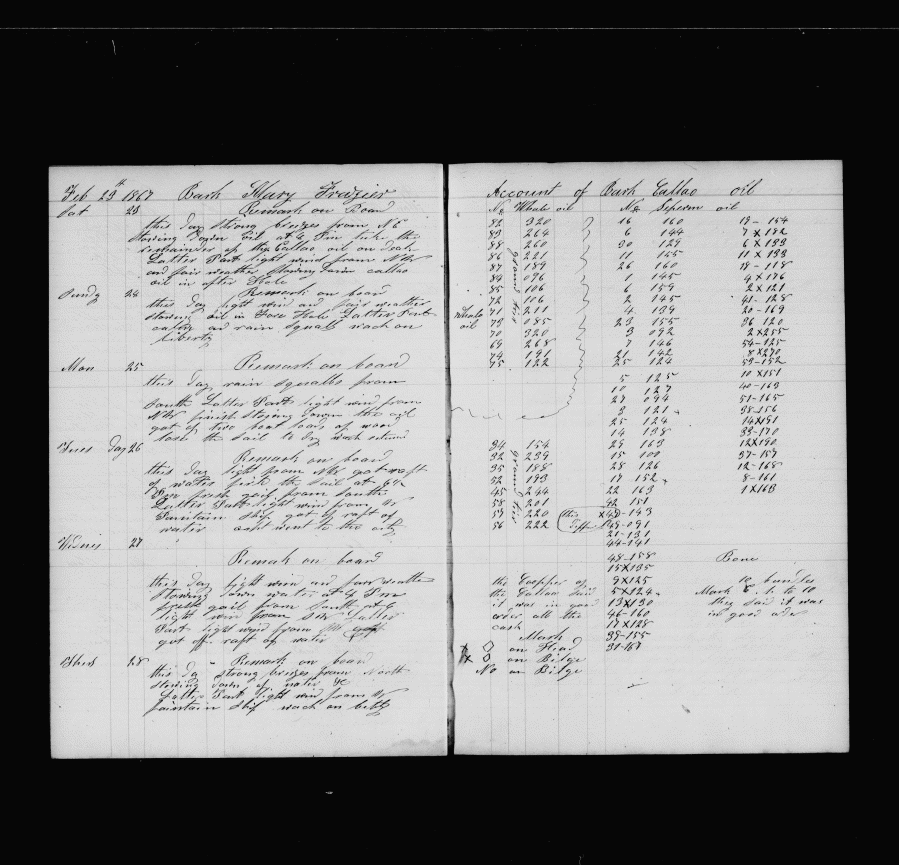 Feb 23th 1867 Bark Mary Frazier
Sat 23 Remark on Board
this day strong brezes from NE
stowing down oil at 4 Pm take the
remainder of the Callao oil on deck
Latter Part light wind from NW
and fair weather stowing down callao
oil in after Hole
Sundy 24 Remark on board
this day light win and fair weather
stowing oil in Fore Hole Latter Part
calm an rain squall wach on
liberty
Mon 25 Remark on board
this day rain squalls from
South Latter Part light wind from
NW finish stowing down the oil
got of two boat loads of wood
lose the sail to dry wach returned
Tues day 26
Remark on board
this day light from NW got raft
of water
Pm fresh gail from South
Latter Part light wind from W
Fountain Ship got of raft of
water went to the city
Wdnis 27
Remark on board
this day light win and fair weathe
stowing down water at 4 Pm
fresh gail from South at 6
light win from SW Latter
Part light wind from
got off raft of water
Thrs 28 Remark on board
this da strong brezes from North
stowing down of water &c
Latter Part light wind from W
fountain Ship wach on
Account of Bark Callao oil
No Whale oil No Seperm oil
82 320 16 160 19 - 154
83 264 6 144 7 x 182
88 260 30 129 6 x 133
86 221 11 155 11 x 133
87 189 26 160 18 - 118
84 096 1 145 4 x 176
85 106 6 159 2 x 121
72 106 2 145 41 - 128
Whale 71 211 4 139 20 - 169
oil 73 085 23 155 36 120
70 320 3 092 2 x 255
69 268 7 146 54 - 125
74 191 21 142 8 x 270
75 122 25 124 53 - 152
Ground tier
5 125 10 x 151
10 127 40 - 163
27 094 51 - 165
3 121 38 - 156
25 124 14 x 151
14 138 33 - 170
34 154 29 163 12 x 190
32 239 15 100 37 - 157
35 188 28 126 12 - 168
52 193 17 152 8 - 161
45 244 22 163 1 x 163
58 201 42 151
59 220 this x 49 - 143
56 222 Tiff 49 - 091
Ground tier
21 - 131
44 - 141
48 - 158 Bone
15 x 135
the Coopper of 9 x 125 12 bundles
the Callao said 5 x 124 Mark C. 1. to 10
it was in good 13 x 130 they said it was
order all the 46 - 160 in good order
cask 17 x 128
Mark 39 - 155
◊ on Head 31 - 167
◊ on Bilge
No on Bilge